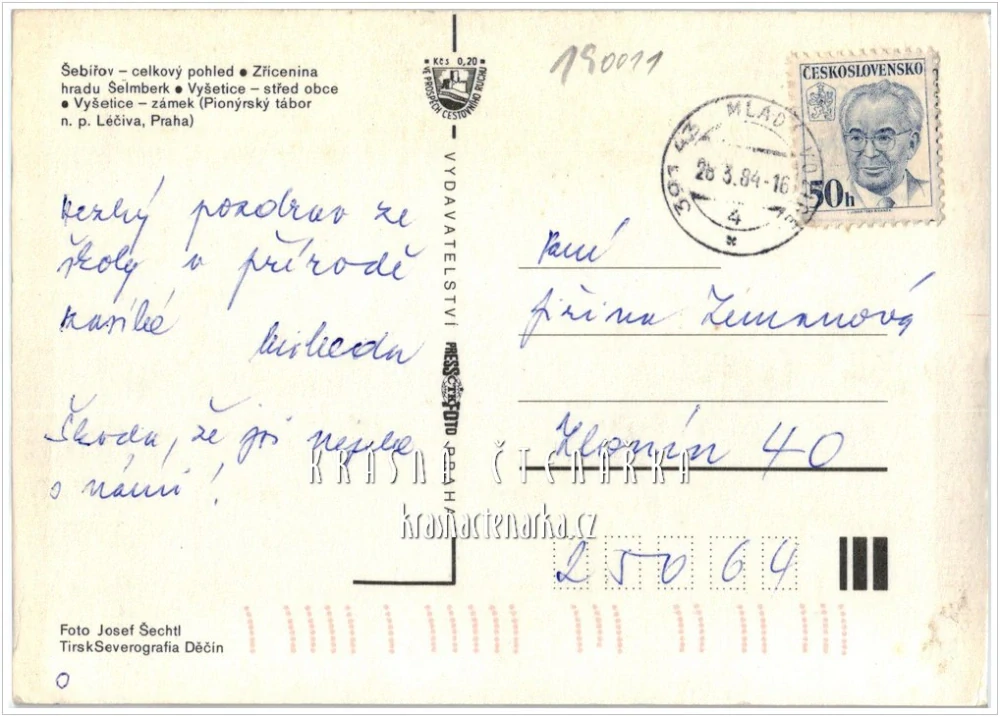 Šebířov – celkový pohled ● Zřícenina
hradu Šelmberk ● Vyšetice – střed obce
● Vyšetice – zámek (Pionýrský tábor
n. p. Léčiva, Praha)
Kčs 0,20
VE PROSPĚCH CESTOVNÍHO RUCHU
190011
ČESKOSLOVENSKO
50h
391 43 MLAD VO
26.3.84-16
4
Hezký pozdrav ze
školy v přírodě
posílá
Škoda, že jsi nejela
s námi!
VYDAVATELSTVÍ PRESSFOTO PRAHA
ČTK
Paní
Jiřina Zemanová
Zlonín 40
25064
KRÁSNÁ ČTENÁŘKA
krasnactenarka.cz
Foto Josef Šechtl
TirskSeverografia Děčín